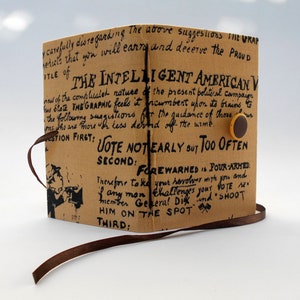 carefully disregarding the above suggestions THE GRAP
tricts that you will earn and deserve the PROUD
TITLE of
THE INTELLIGENT AMERICAN V
of the complicated nature of the present political campaign
THE GRAPHIC feels it incumbent upon its friends to
following suggestions for the guidance of those
who are more or less behind
QUESTION FIRST:
VOTE NOT EARLY BUT TOO OFTEN
SECOND:
FOREWARNED IS FOUR-ARMED
Therefore take your revolver with you and
if any man Challenges your VOTE
member General Dix and "SHOOT
HIM ON THE SPOT
THIRD: